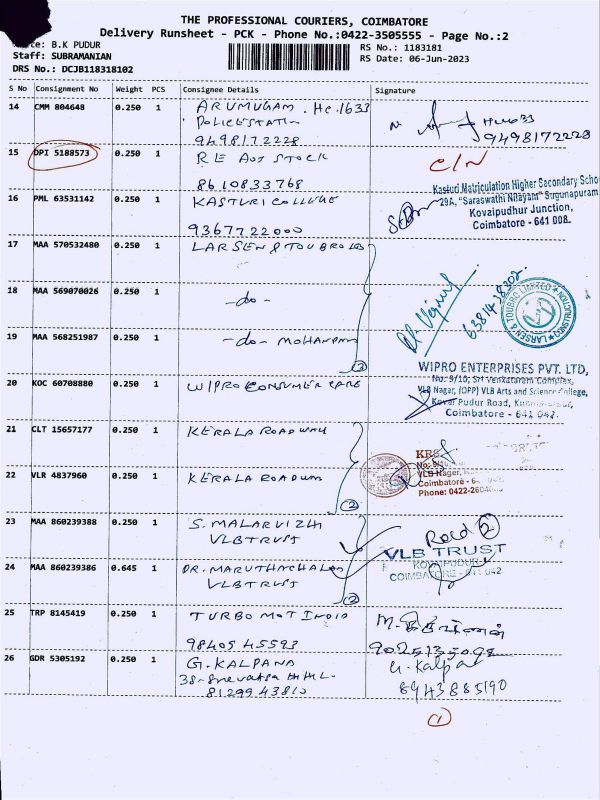 THE PROFESSIONAL COURIERS, COIMBATORE
Delivery Runsheet - PCK - Phone No.:0422-3505555 - Page No.:2
B.K PUDUR
RS No.: 1183181
Staff: SUBRAMANIAN
RS Date: 06-Jun-2023
DRS No.: DCJB118318102
S No Consignment No Weight PCS Consignee Details Signature
14 CMM 804648 0.250 1 ARUMUGAM . Hc.1633
POLICE STATI
9498172228
9498172228
15 DPI 5188573 0.250 1 R E A05 STOCK
8610833768
C/N
16 PML 63531142 0.250 1 KASTURI COLLUGE
9367722000
Kasturi Matriculation Higher Secondary Scho
29A, "Saraswathi Nilayam" Sugunapuram
Kovaipudhur Junction,
Coimbatore - 641 008.
17 MAA 570532480 0.250 1 LARSEN & TOUBRO LTD
18 MAA 569070026 0.250 1 -do-
6381438302
LARSEN & TOUBRO LIMITED * CONSTRUCTION *
19 MAA 568251987 0.250 1 -do- MOHANAM
3
20 KOC 60708880 0.250 1 WIPRO CONSUMER CARE
WIPRO ENTERPRISES PVT. LTD,
No: 9/10, Sri Venkatram Complex,
VLB Nagar, (OPP) VLB Arts and Science College,
Kovai Pudur Road,
Coimbatore - 641 042.
21 CLT 15657177 0.250 1 KERALA ROADWAY
22 VLR 4837960 0.250 1 KERALA ROADWAY
2
KRS
No: 9/10
VLB Nagar,
Coimbatore - 6
Phone: 0422-260
23 MAA 860239388 0.250 1 S. MALARVIZHI
VLB TRUST
24 MAA 860239386 0.645 1 DR. MARUTHACHALAM
VLB TRUST
2
Recd 2
VLB TRUST
KOVAIPUDUR
COIMBATORE - 641 042
25 TRP 8145419 0.250 1 TURBO MOT INDIA
98405 45593
26 GDR 5305192 0.250 1 G. KALPANA
38- Sreevatsa HILL-
81299 43810
G. Kalpa
8943885190
1